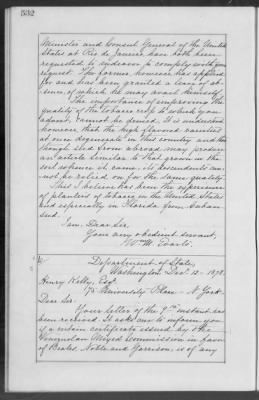 532
Minister and Consul General of the United
States at Rio de Janeiro have both been
requested to endeavor to comply with your
request. The former however has applied
for and has been granted a leave of ab-
sence, of which he may avail himself.
The importance of improving the
quality of the tobacco crop to which you
advert, cannot be denied. It is understood
however, that the high flavored varieties
at once degenerate in this country and that
though seed from abroad may produce
an article similar to that grown in the
soil whence it came, its descendents can-
not be relied on for the same quality.
This I believe has been the experience
of planters of tobacco in the United States
and especially in Florida from Cuban
seed.
I am, Dear Sir,
Your obedient servant,
Wm. M. Evarts.
Department of State,
Washington, Dec. 12 - 1878.
Henry Kelly, Esq.
University Place - N York.
Dear Sir:
Your letter of the 9th instant has
been received. It asks me to inform you
if a certain certificate issued by the
Venezuelan Mixed Commission in favor
of Beales Noble and Garrison, is of any